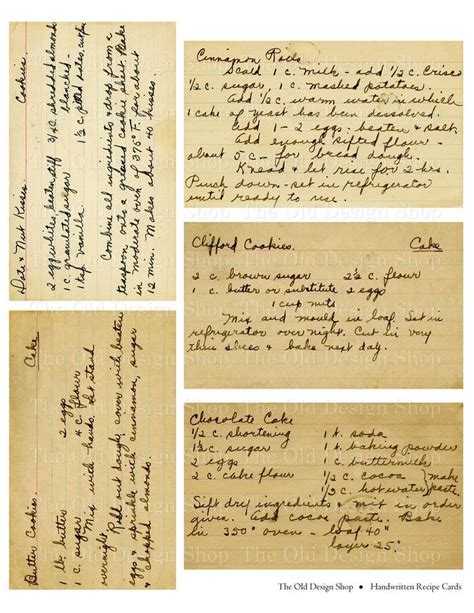 Date & Nut Kisses. Cookies
2 egg whites, beaten stiff 3/4 c. shredded almonds
1 c. granulated sugar blanched-
1 tsp vanilla. pitted dates,
Combine all ingredients & drop from a
teaspoon onto a greased cookie sheet. Bake
in moderate oven of 375° F. for about
12 min. Makes about 40 kisses.
Butter Cookies. Cake
1 lb. butter 2 eggs
1 c. sugar 4 c. flour
Mix with hands. Let stand
overnight.
Roll out dough, cover with beaten
eggs & sprinkle with cinnamon, sugar
& chopped almonds.
Cinnamon Rolls
Scald 1 c. milk - add 1/2 c. Crisco
1/2 c. sugar, 1 c. mashed potatoes.
Add 1/2 c. warm water in which
1 cake of yeast has been dissolved.
Add 1-2 eggs beaten & salt.
Add enough sifted flour -
about 5 c - for bread dough.
Knead & let rise for 2 hrs.
Punch down - set in refrigerator
until ready to use.
The Old Design Shop
Clifford Cookies. Cake
2 c. brown sugar 2 1/2 c. flour
1 c. butter or substitute 2 eggs
1 cup nuts
Mix and mould in loaf. Set in
refrigerator overnight. Cut in very
thin slices & bake next day.
The Old Design Shop
Chocolate Cake
1/2 c. shortening 1 t. soda
1 1/2 c. sugar 1 t. baking powder
2 eggs 1 c. buttermilk
2 c. cake flour 1/2 c. cocoa } make
1/3 c. hot water } paste
Sift dry ingredients & mix in order
given. Add cocoa paste. Bake
in 350° oven - loaf 40"
layer 25"
The Old Design Shop
The Old Design Shop
The Old Design Shop
The Old Design Shop • Handwritten Recipe Cards